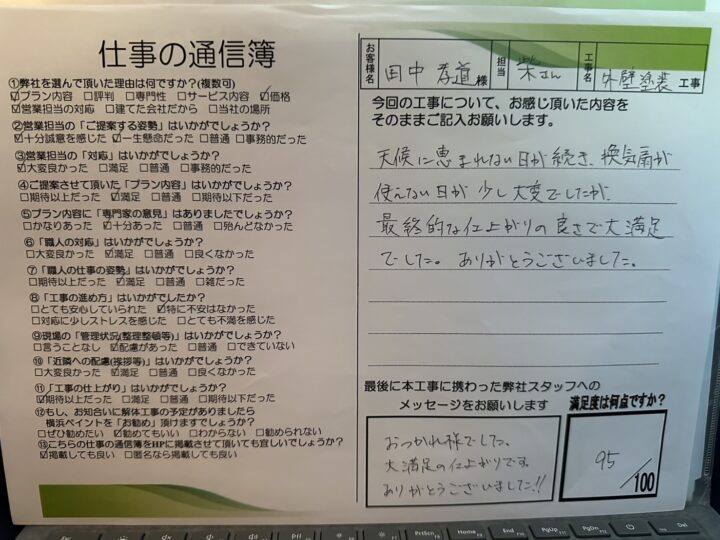 仕事の通信簿
①弊社を選んで頂いた理由は何ですか?(複数可)
☑プラン内容 □評判 □専門性 □サービス内容 ☑価格
☑営業担当の対応 □建てた会社だから □当社の場所
②営業担当の「ご提案する姿勢」はいかがでしょうか?
☑十分誠意を感じた ☑一生懸命だった □普通 □事務的だった
③営業担当の「対応」はいかがでしょうか?
☑大変良かった □満足 □普通 □事務的だった
④ご提案させて頂いた「プラン内容」はいかがでしょうか?
□期待以上だった ☑満足 □普通 □期待以下だった
⑤プラン内容に「専門家の意見」はありましたでしょうか?
□かなりあった ☑十分あった □普通 □殆んどなかった
⑥「職人の対応」はいかがでしょうか?
□大変良かった ☑満足 □普通 □良くなかった
⑦「職人の仕事の姿勢」はいかがでしょうか?
□期待以上だった ☑満足 □普通 □雑だった
⑧「工事の進め方」はいかがでしたか?
□とても安心していられた ☑特に不安はなかった
□対応に少しストレスを感じた □とても不満を感じた
⑨現場の「管理状況(整理整頓等)」はいかがでしょうか?
□言うことなし ☑配慮があった □普通 □できていない
⑩「近隣への配慮(挨拶等)」はいかがでしょうか?
□大変良かった ☑満足 □普通 □良くなかった
⑪「工事の仕上がり」はいかがでしょうか?
☑期待以上だった □満足 □普通 □期待以下だった
⑫もし、お知合いに解体工事の予定がありましたら
横浜ペイントを「お勧め」頂けますでしょうか?
□ぜひ勧めたい ☑勧めてもいい □わからない □勧められない
⑬こちらの仕事の通信簿をHPに掲載させて頂いても宜しいでしょうか?
☑掲載しても良い □匿名なら掲載しても良い
お客様名 田中 孝道 様 担当 柴さん 工事名 外壁塗装 工事
今回の工事について、お感じ頂いた内容を
そのままご記入お願いします。
天候に恵まれない日が続き、換気扇が
使えない日が少し大変でしたが、
最終的な仕上がりの良さで大満足
でした。ありがとうございました。
最後に本工事に携わった弊社スタッフへの
メッセージをお願いします
おつかれ様でした。
大満足の仕上がりです。
ありがとうございました!!
満足度は何点ですか?
95/100
PrtScn Home End PgUp PgDn Del